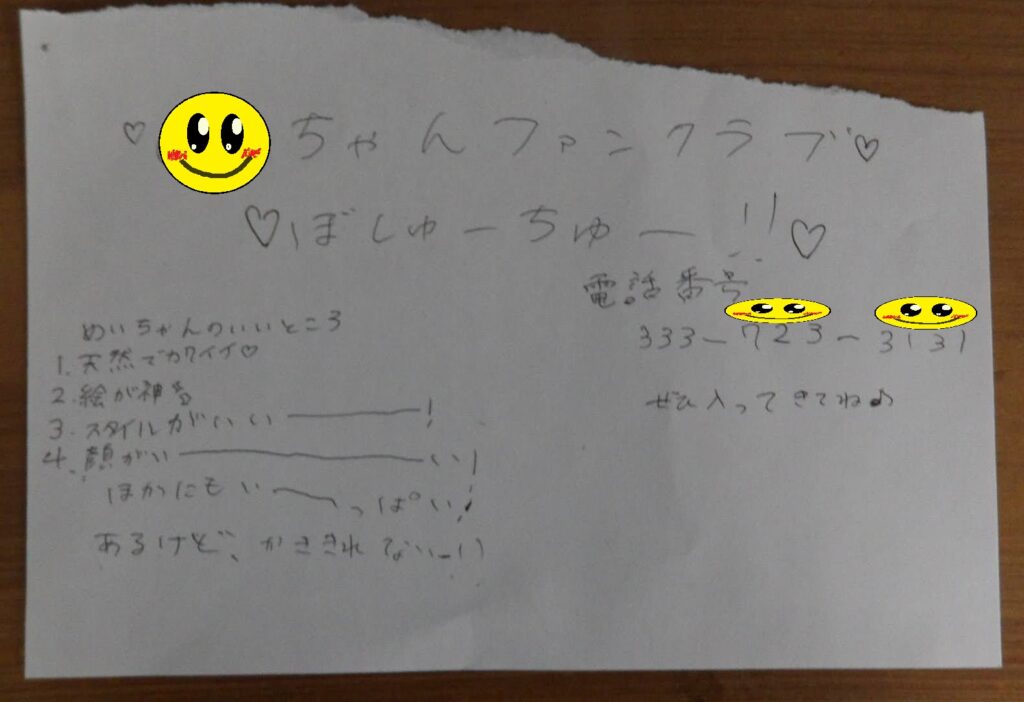 ♡ ちゃんファンクラブ♡
♡ぼしゅーちゅー!!♡
電話番号
333-723-3131
ぜひ入ってきてね♪
めいちゃんのいいところ
1.天然でカワイイ♡
2.絵が神
3.スタイルがいいー!
4.顔がいーい!
ほかにもいーっぱい!
あるけど、かききれないー!)